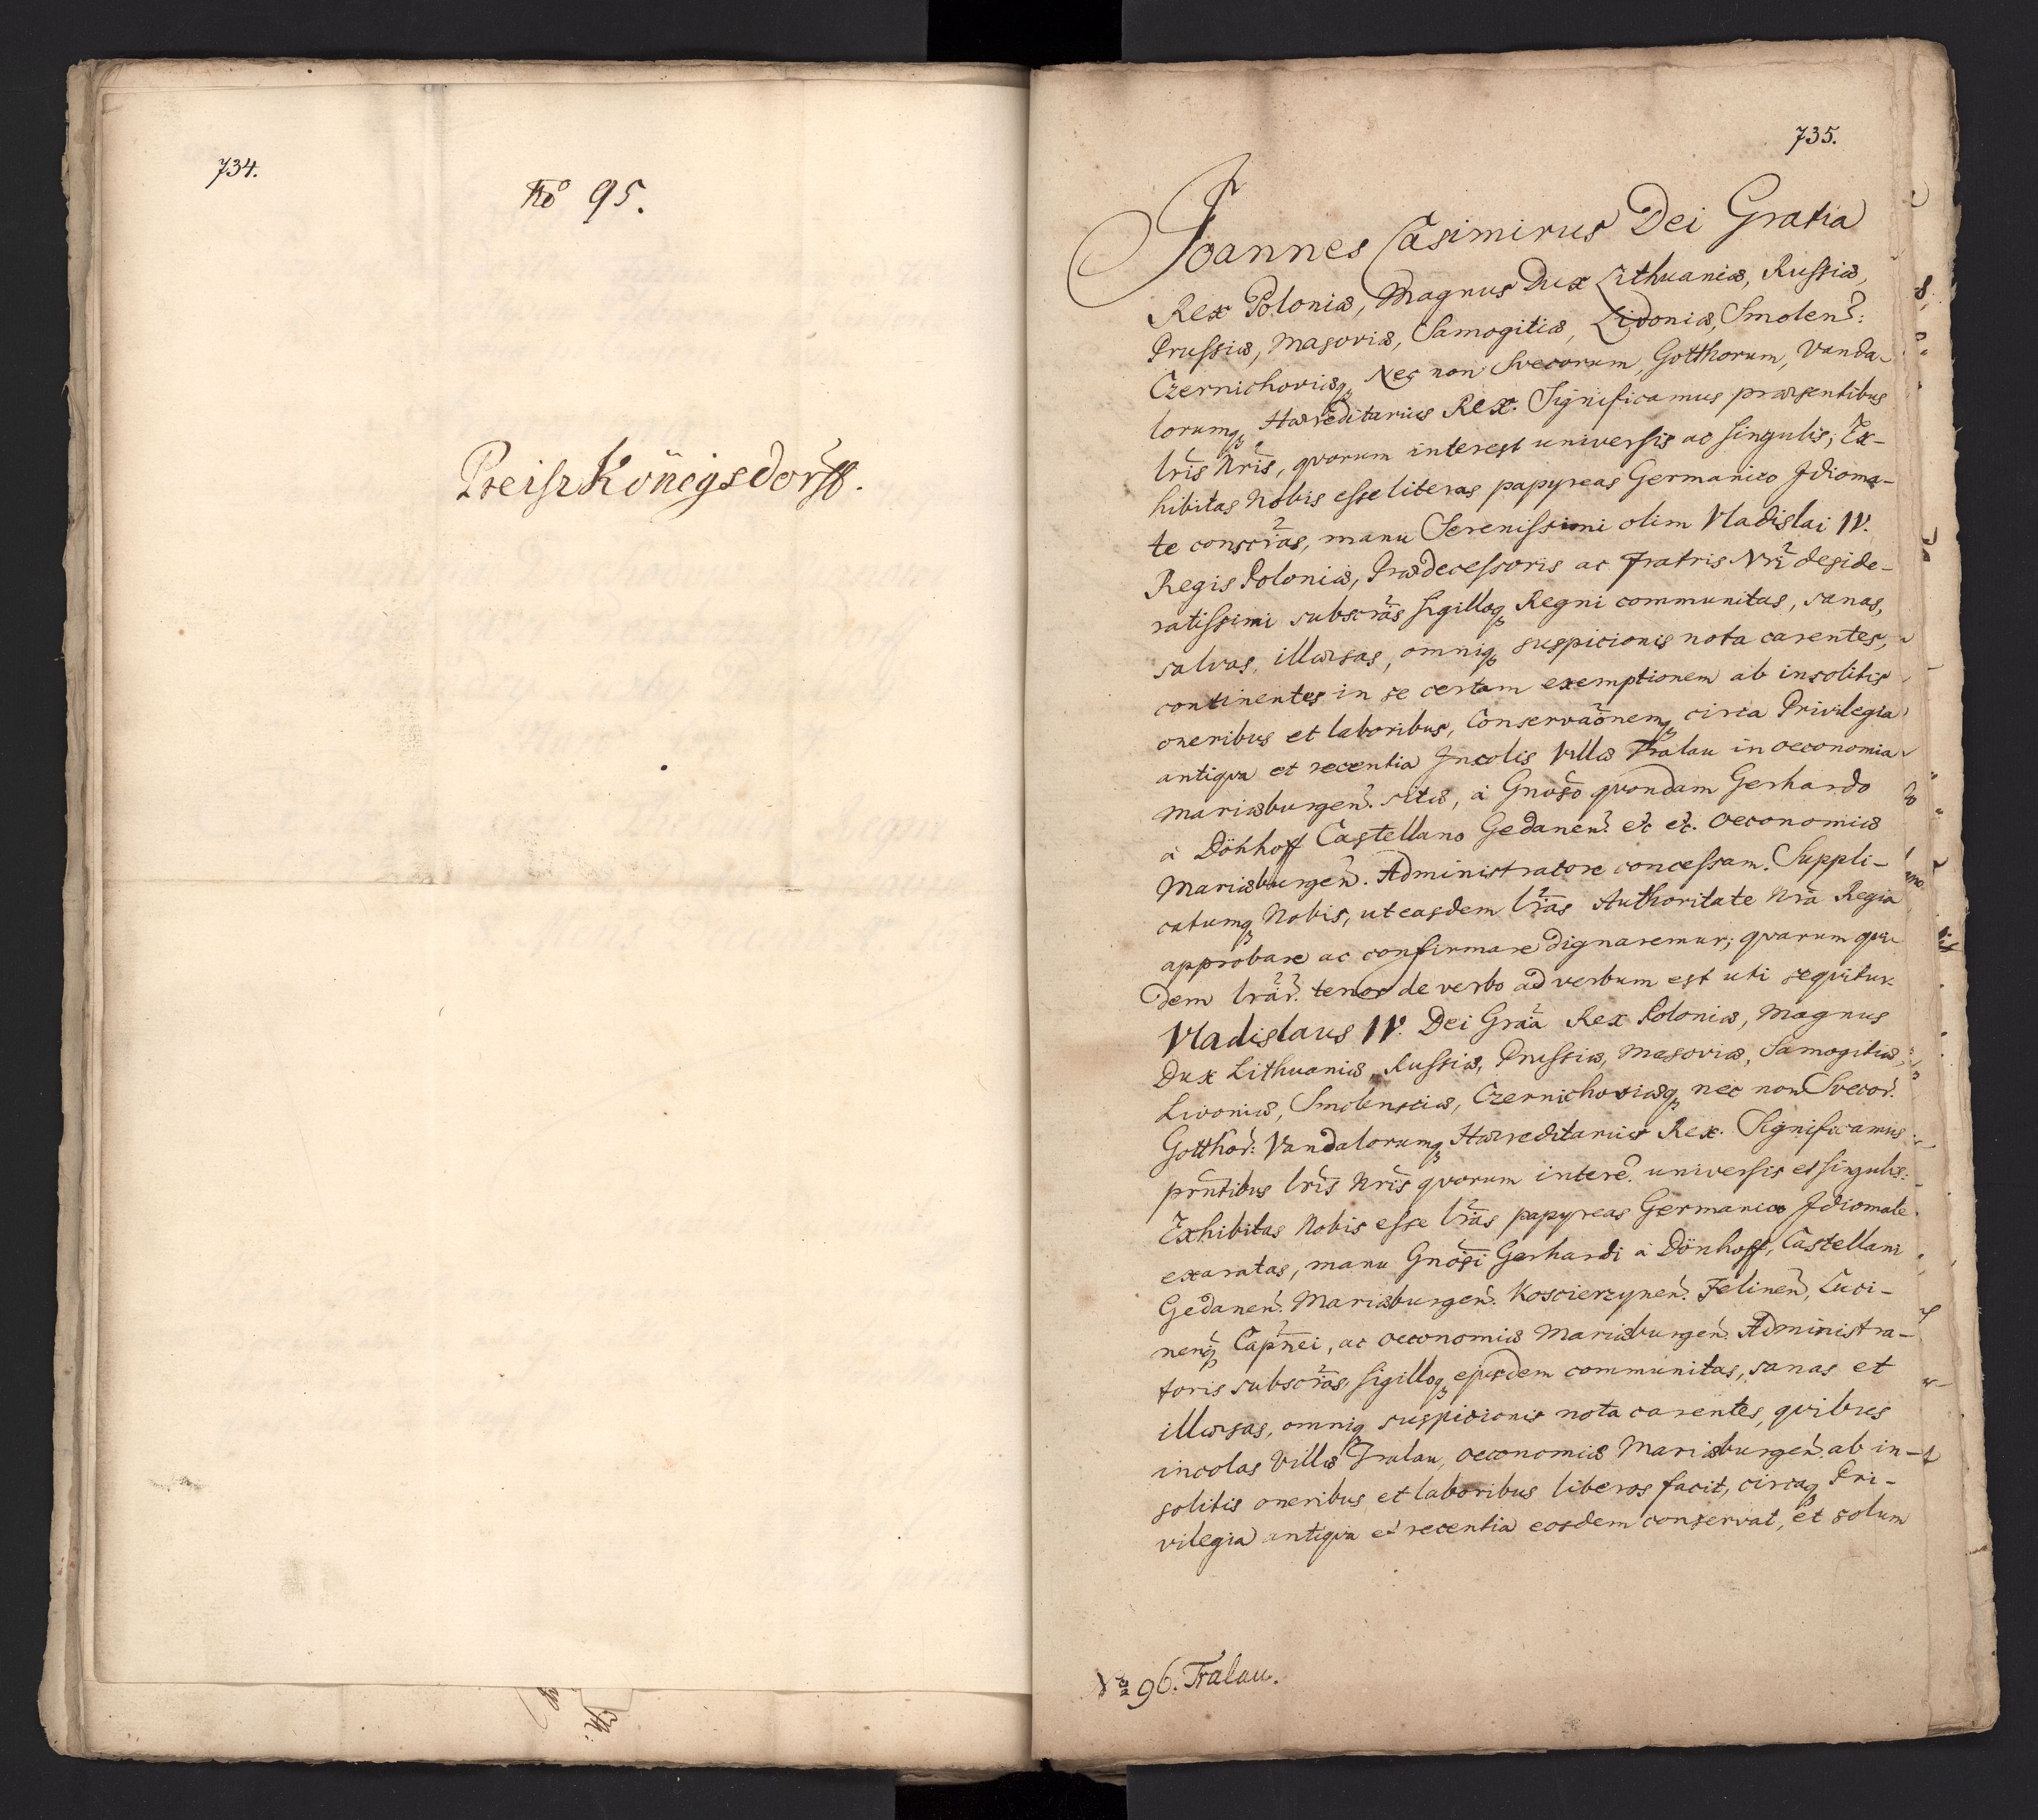 734.
No 95.
Preiſz Königsdorff.
735.
Joannes Casimirus Dei Gratia
Rex Poloniæ, Magnus Dux Lithuaniæ, Ruſsiæ,
Pruſsiæ, Masoviæ, Samogitiæ, Livoniæ, Smolen:
Czernichoviæq́ Nec non Svecorum, Gotthorum, Vanda-
lorumq́ Hæreditarius Rex. Significamus præsentibus
lr̃is Nr̃is, qvorum interest universis ac singulis; Ex-
hibitas Nobis eſse literas papyreas Germanico Idioma-
te conscr̃as, manu Sereniſsimi olim Vladislai IV.
Regis Poloniæ, Prædeceſsoris ac Fratris Nr̃i deside-
ratiſsimi subscr̃as sigilloq́ Regni communitas, sanas,
salvas, illæsas, omniq́ suspicionis nota carentes,
continentes in se certam exemptionem ab insolitis
oneribus et laboribus, Conservaõnemq́ circa Privilegia
antiqva et recentia Incolis Villæ Tralau in oeconomia
Mariæburgen. sitæ, à Gnõso qvondam Gerhardo
à Dönhoff Castellano Gedanen. etc etc. Oeconomiæ
Mariæburgen. Administratore conceſsam. Suppli-
catumq́ Nobis, ut easdem lr̃as Authoritate Nr̃a Regia
approbare ac confirmare dignaremur; qvarum qvi-
dem lr̃ar. tenor de verbo ad verbum est uti seqvitur.
Vladislaus IV. Dei Gr̃aa Rex Poloniæ, Magnus
Dux Lithuaniæ, Ruſsiæ, Pruſsiæ, Masoviæ, Samogitiæ,
Livoniæ, Smolensciæ, Czernichoviæq́ nec non Svecor.
Gotthor: Vandalorumq́ Hæreditarius Rex. Significamus
prñtibus lr̃is Nr̃is qvorum intere. universis et singulis:
Exhibitas Nobis eſse lr̃as papyreas Germanico Idiomate
exaratas, manu Gnõsi Gerhardi à Dönhoff, Castellani
Gedanen. Mariæburgen. Koscierzynen. Felinen, Luci-
nenq́ Capñei, ac Oeconomiæ Mariæburgen. Administra-
toris subscr̃as, sigilloq́ ejusdem communitas, sanas et
illæsas, omniq́ suspicionis nota carentes, qvibus
incolas Villæ Tralau, Oeconomiæ Mariæburgen. ab in-
solitis oneribus et laboribus liberos facit, circaq́ Pri-
vilegia antiqva et recentia eosdem conservat, et solum
No 96. Tralau.